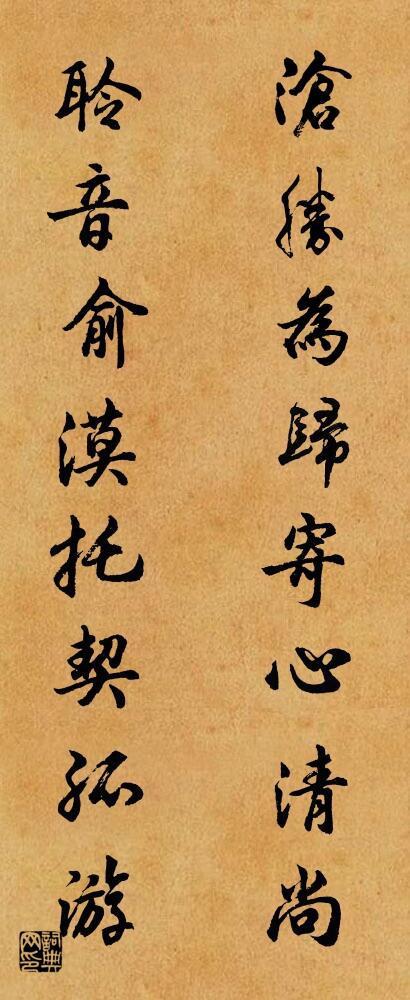 滄勝為歸寄心清尚
聆音俞漠托契孤游
詞典
网印